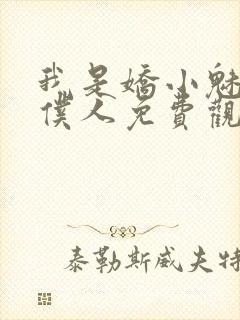 我是嬌小魅
僕人免費觀
泰勒斯威夫特